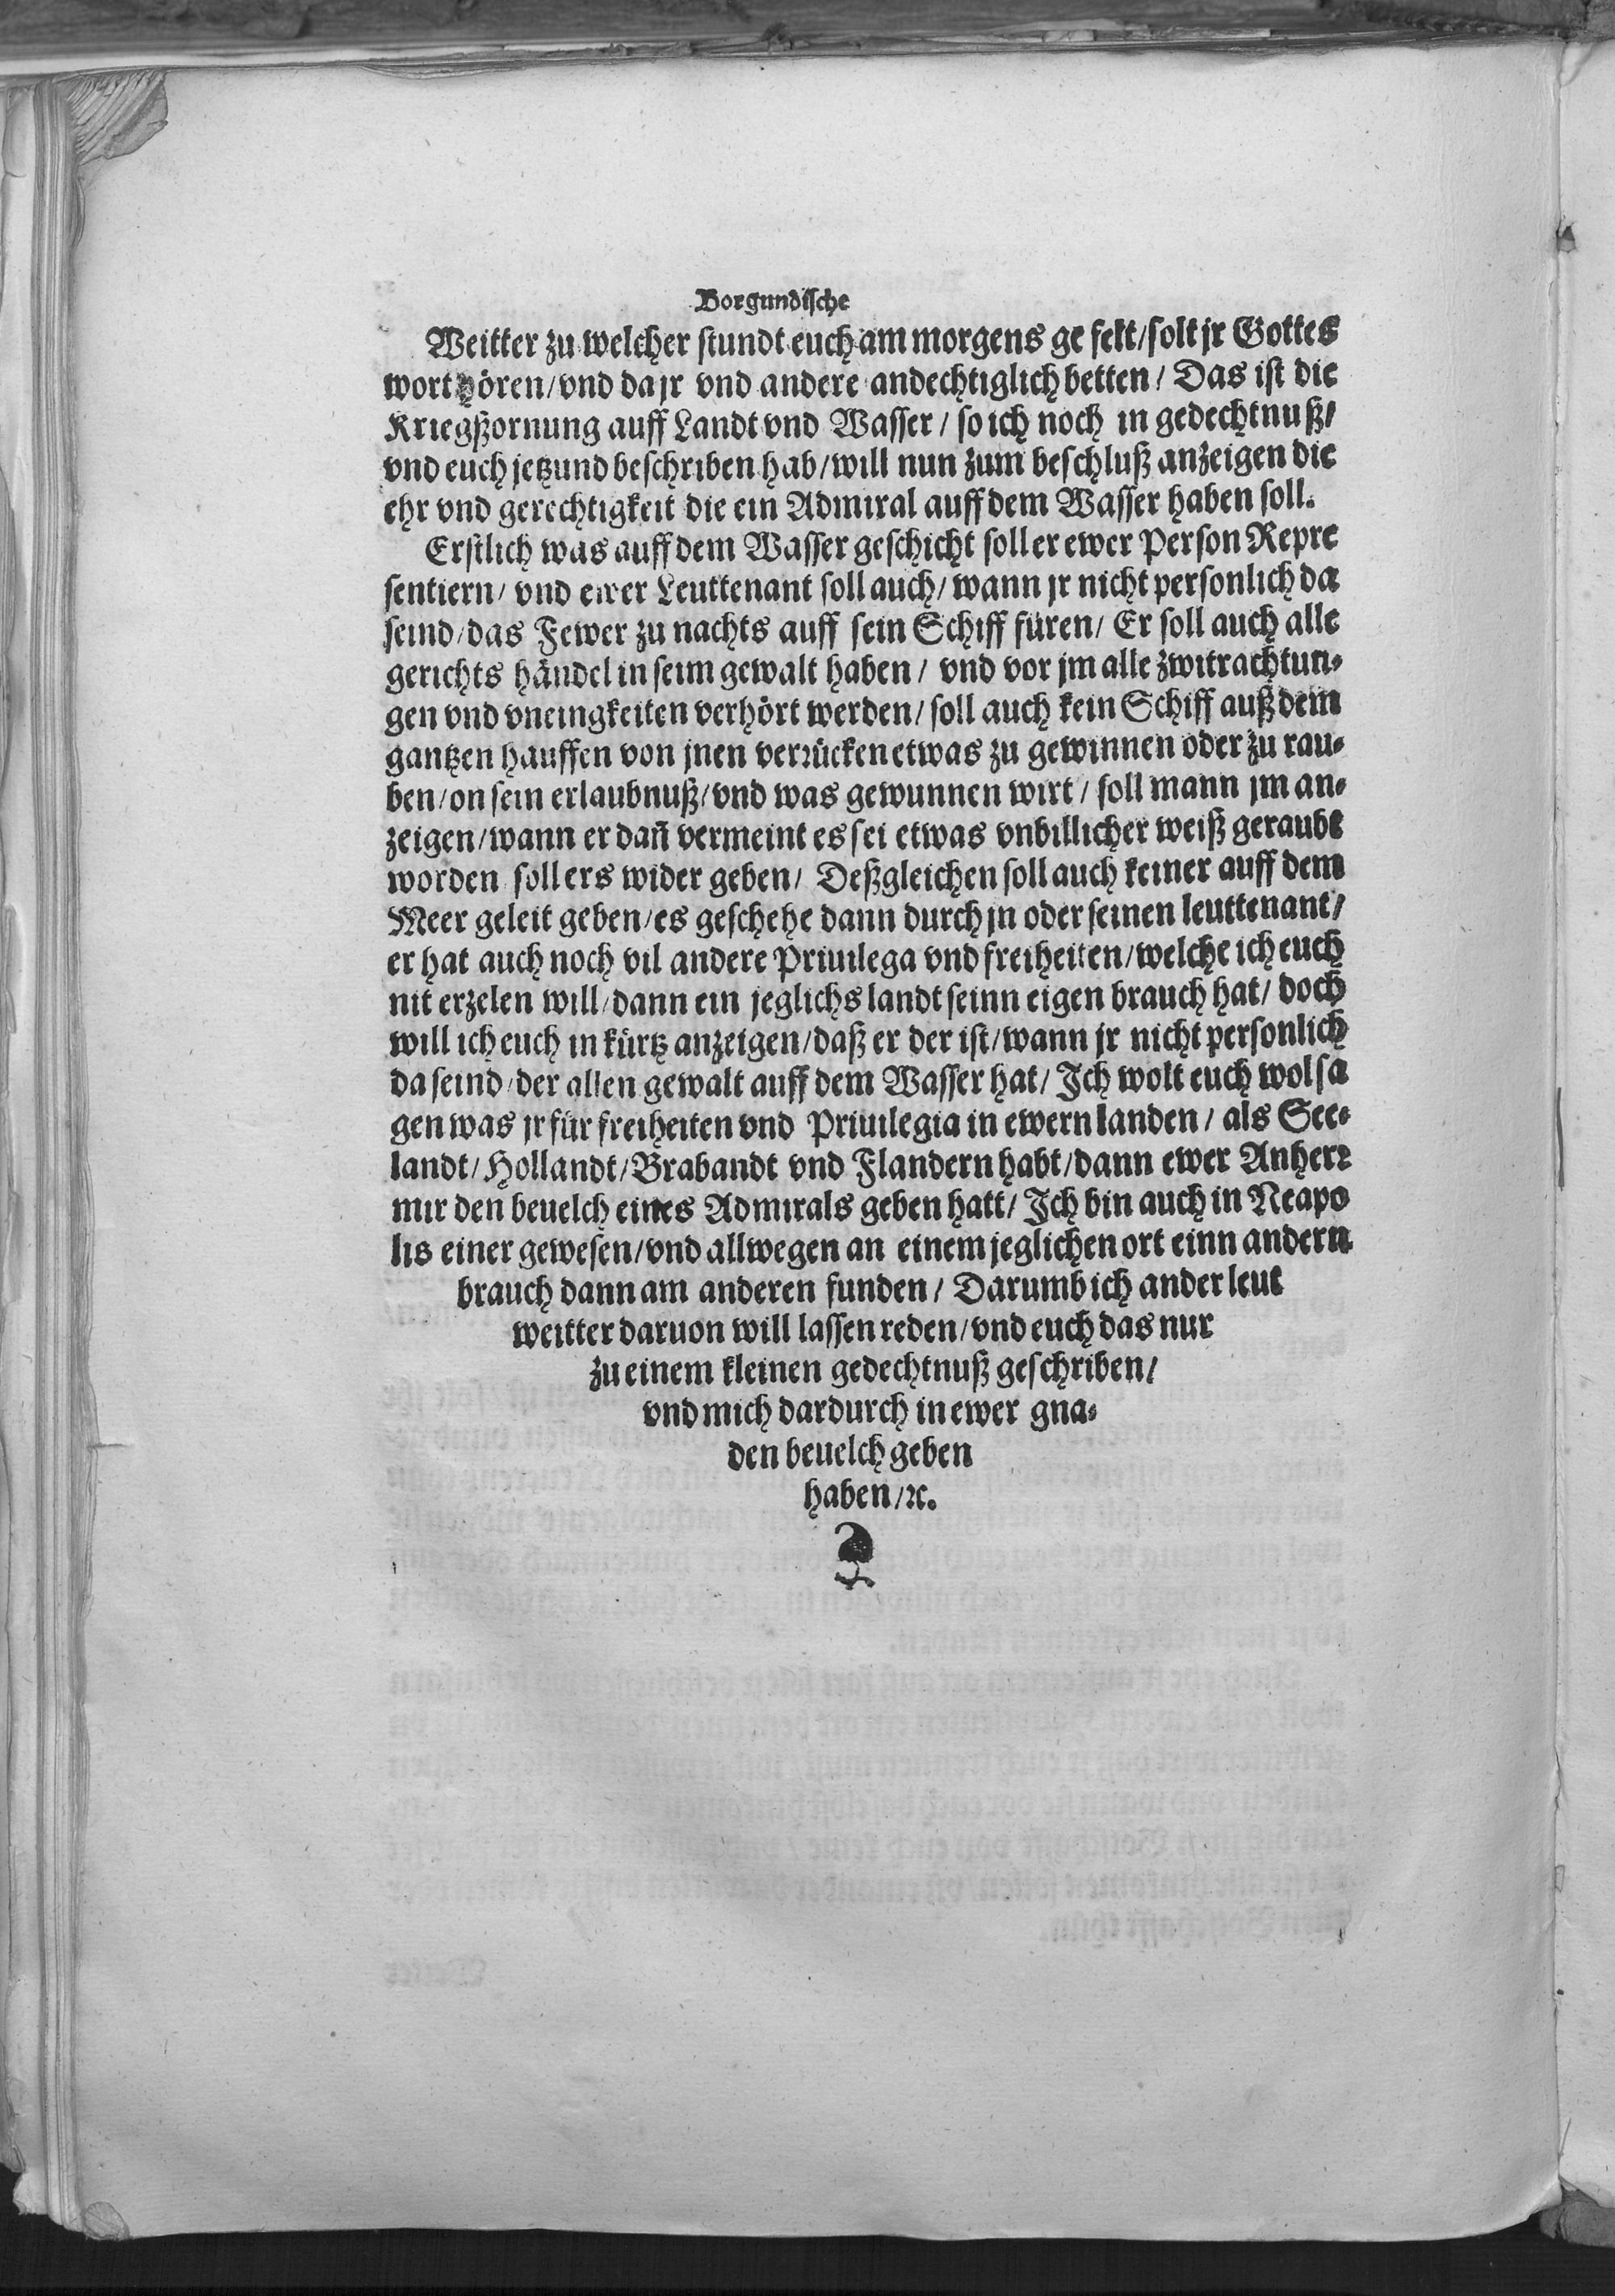 Borgundische
Weitter zu welcher stundt euch am morgens ge felt/solt jr Gottes
wort hören/vnd da jr vnd andere andechtiglich betten/ Das ist die
Kriegßornung auff Landt vnd Wasser/ so ich noch in gedechtnuß/
vnd euch jetzund beschriben hab/will nun zum beschluß anzeigen die
ehr vnd gerechtigkeit die ein Admiral auff dem Wasser haben soll.
Erstlich was auff dem Wasser geschicht soll er ewer Person Repre
sentiern/ vnd ewer Leuttenant soll auch/ wann jr nicht personlich da
seind/das Fewer zu nachts auff sein Schiff füren/ Er soll auch alle
gerichts händel in seim gewalt haben/ vnd vor jm alle zwitrachtun⸗
gen vnd vneingkeiten verhört werden/ soll auch kein Schiff auß dem
gantzen hauffen von jnen verrücken etwas zu gewinnen oder zu rau⸗
ben/on sein erlaubnuß/vnd was gewunnen wirt/ soll mann jm an⸗
zeigen/wann er dañ vermeint es sei etwas vnbillicher weiß geraubt
worden soll ers wider geben/ Deßgleichen soll auch keiner auff dem
Meer geleit geben/es geschehe dann durch jn oder seinen leuttenant/
er hat auch noch vil andere Priuilega vnd freiheiten/welche ich euch
nit erzelen will/dann ein jeglichs landt seinn eigen brauch hat/ doch
will ich euch in kürtz anzeigen/daß er der ist/wann jr nicht personlich
da seind/der allen gewalt auff dem Wasser hat/ Ich wolt euch wol sa
gen was jr für freiheiten vnd Priuilegia in ewern landen/ als See⸗
landt/Hollandt/Brabandt vnd Flandern habt/dann ewer Anherr
mir den beuelch eines Admirals geben hatt/ Ich bin auch in Neapo
lis einer gewesen/vnd allwegen an einem jeglichen ort einn andern
brauch dann am anderen funden/ Darumb ich ander leut
weitter daruon will lassen reden/vnd euch das nur
zu einem kleinen gedechtnuß geschriben/
vnd mich dardurch in ewer gna⸗
den beuelch geben
haben/ꝛc.